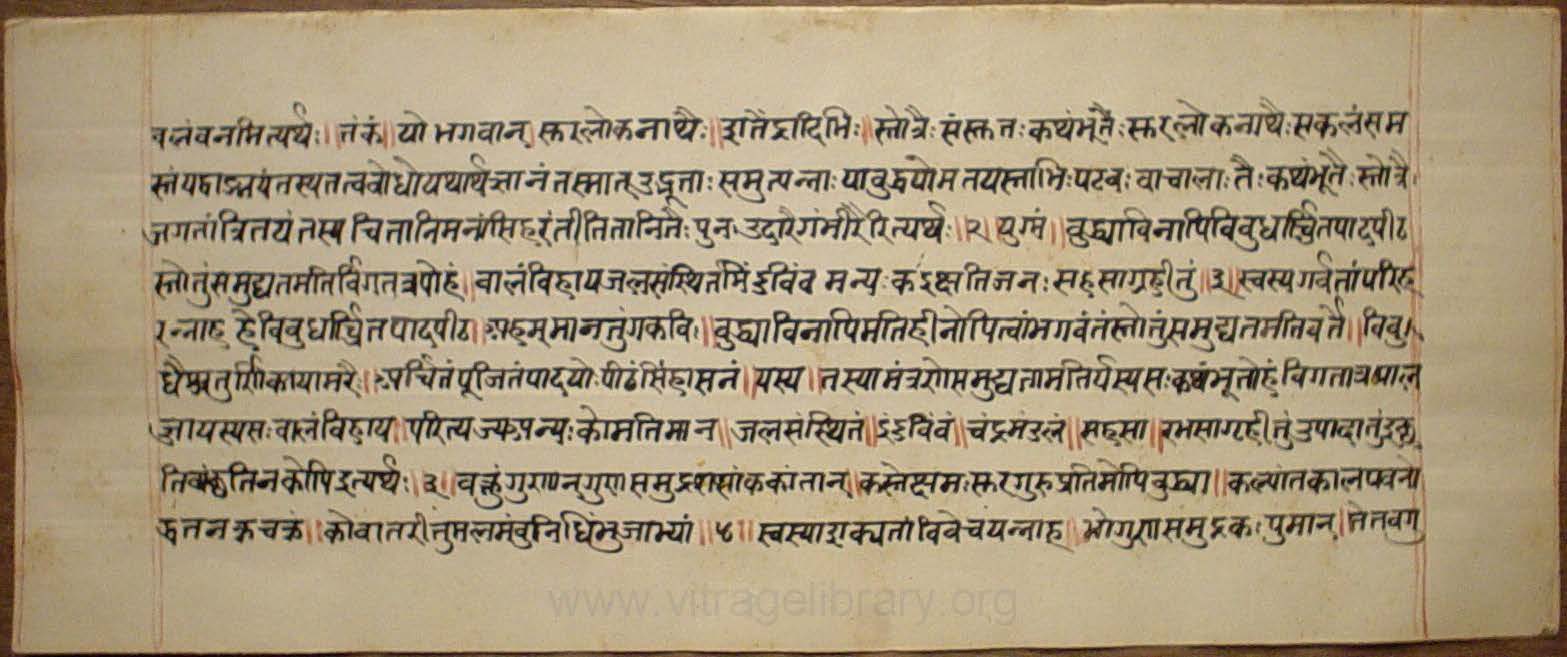 वलंवनमित्यर्थः ॥ तंकं ॥ यो भगवान् सुरलोकनाथैः ॥ शतेंद्रादिभिः ॥ स्तोत्रैः संस्तुतः कथंभूतैः सुरलोकनाथैः सकलंसम
स्तंयद्वाङ्मयंतस्यतत्वबोधोयथार्थज्ञानंतस्मात् उद्भूताः समुत्पन्नाः याबुद्धयोमतयस्ताभिः पटवः वाचालाः तैः कथंभूतैः स्तोत्रैः
जगतांत्रितयंतस्य चित्तानिमनांसिहरंतीतितानितैः पुनः उदारैर्गंभीरैरित्यर्थः ॥ २ ॥ युग्मं ॥ बुद्ध्याविनापिविबुधार्च्चितपादपीठ
स्तोतुंसमुद्यतमतिर्विगतत्रपोहं ॥ बालंविहायजलसंस्थितमिंदुबिंब मन्यः कइक्षतिजनः सहसाग्रहीतुं ॥ ३ ॥ स्वस्यगर्वतांपरिह
रन्नाह हेविबुधार्च्चितपादपीठ ॥ अहम् मानतुंगकविः ॥ बुद्ध्याविनापिमतिहीनोपित्वांभगवंतंस्तोतुंसमुद्यतमतिवर्ते ॥ विबु
धैश्चतुर्णिकायामरैः ॥ अर्चितंपूजितंपादयोः पीठंसिंहासनं ॥ यस्य ॥ तस्यामंत्रणेसमुद्यतामतिर्यस्यसः कथंभूतोहंविगतात्रपाल
ज्जायस्यसः बालंविहाय ॥ परित्यज्यअन्यः कोमतिमान ॥ जलसंस्थितं ॥ इंदुबिंबं ॥ चंद्रमंडलं ॥ सहसा ॥ रभसागृहीतुंउपादातुंइच्छ
तिनकोपिइत्यर्थः ॥ ३ ॥ वक्तुंगुणान्गुणसमुद्रशसांककांतान् कस्तेक्षमः सुरगुरुप्रतिमोपिबुद्ध्या ॥ कल्पांतकालपवनो
द्धतनक्रचक्रं ॥ कोवातरीतुमलमंबुनिधिंभुजाभ्यां ॥ ४ ॥ स्वस्याशक्यतांविवेचयन्नाह ॥ भोगुणसमुद्रकः पुमान् ॥ तेतवगु
www.vitragelibrary.org